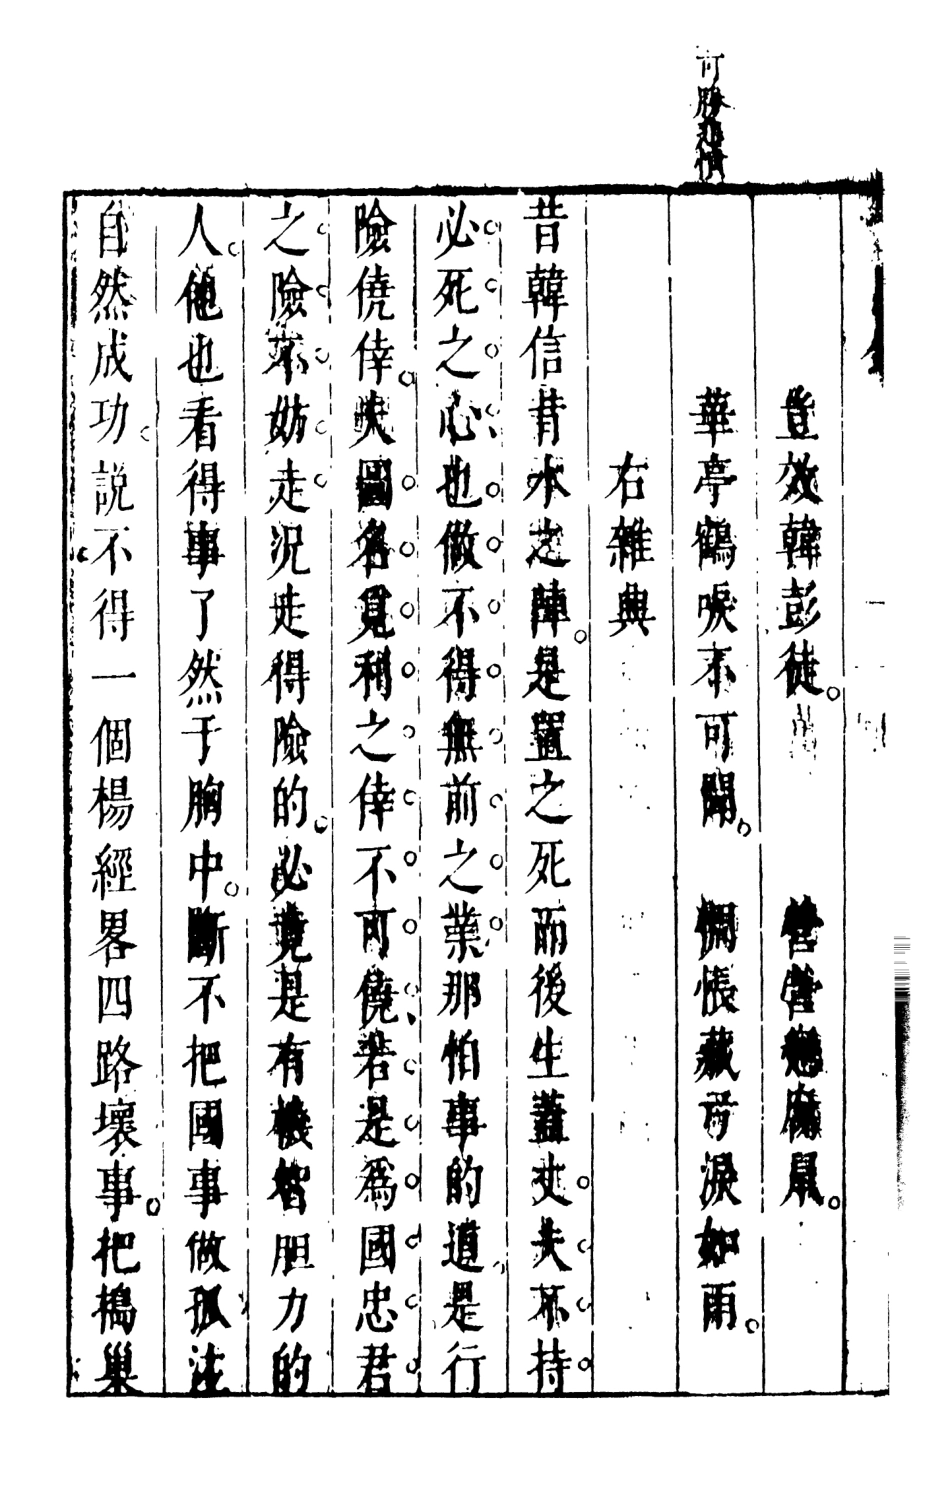 可勝悲憤
豈效韓彭徒。營營麋鹿。
華亭鶴唳不可聞。惆悵藏弓淚如雨。
右雜典
昔韓信背水之陣。是置之死而後生蓋丈夫不持
必死之心也做不得無前之業那怕事的道是行
險僥倖。夫圖名覓利之倖不可僥若是為國忠君
之險不妨走況走得險的。必竟是有機智胆力的
人。他也看得事了然于胸中。斷不把國事做孤注
自然成功。説不得一個楊經畧四路壞事。把搗巢